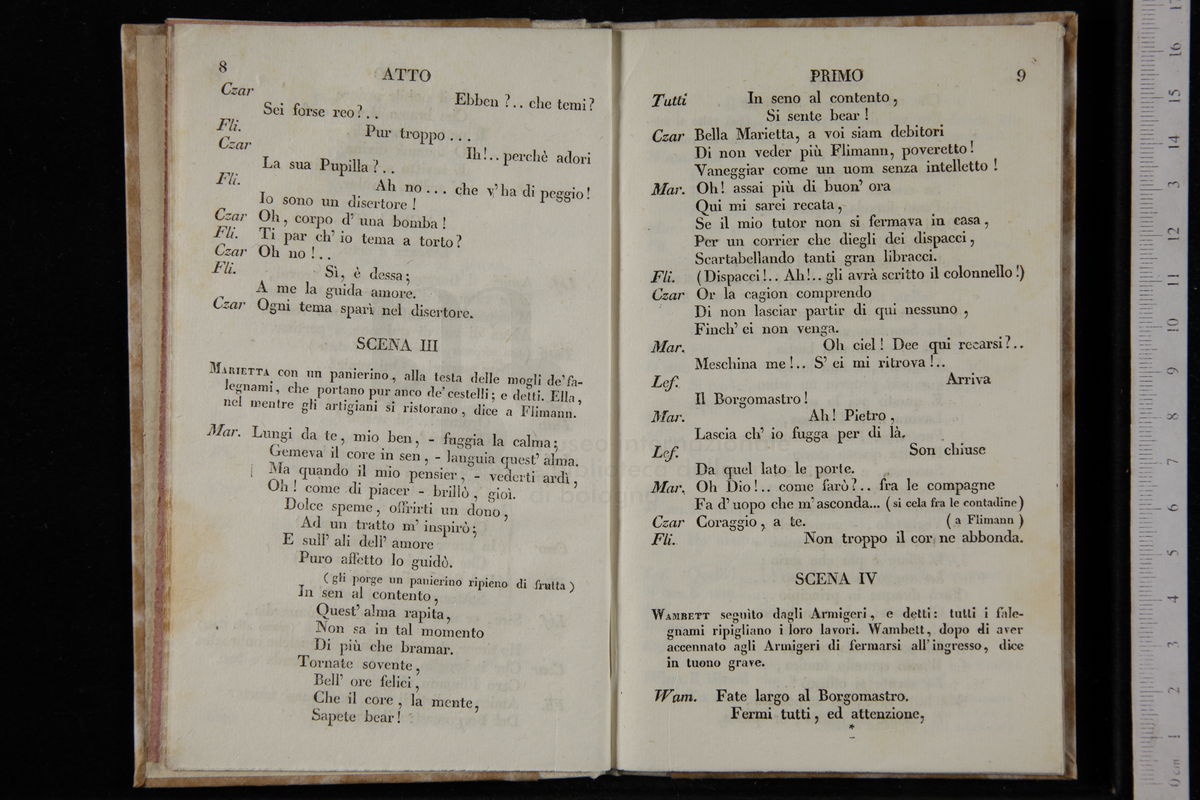 8
ATTO
Czar Ebben ?.. che temi?
Sei forse reo?..
Fli. Pur troppo ...
Czar Ih!.. perchè adori
La sua Pupilla ?..
Fli. Ah no ... che v'ha di peggio!
Io sono un disertore!
Czar Oh, corpo d' una bomba!
Fli. Ti par ch' io tema a torto?
Czar Oh no !..
Fli. Sì, è dessa;
A me la guida amore.
Czar Ogni tema sparì nel disertore.
SCENA III
MARIETTA con un panierino, alla testa delle mogli de' fa-
legnami, che portano pur anco de' cestelli; e detti. Ella,
nel mentre gli artigiani si ristorano, dice a Flimann.
Mar. Lungi da te, mio ben, - fuggia la calma;
Gemeva il core in sen, - languia quest' alma.
Ma quando il mio pensier, - vederti ardì,
Oh! come di piacer - brillò, gioì.
Dolce speme, offrirti un dono,
Ad un tratto m' inspirò;
E sull' ali dell' amore
Puro affetto lo guidò.
(gli porge un panierino ripieno di frutta)
In sen al contento,
Quest' alma rapita,
Non sa in tal momento
Di più che bramar.
Tornate sovente,
Bell' ore felici,
Che il core, la mente,
Sapete bear!
PRIMO
9
Tutti In seno al contento,
Si sente bear!
Czar Bella Marietta, a voi siam debitori
Di non veder più Flimann, poveretto!
Vaneggiar come un uom senza intelletto!
Mar. Oh! assai più di buon' ora
Qui mi sarei recata,
Se il mio tutor non si fermava in casa,
Per un corrier che diegli dei dispacci,
Scartabellando tanti gran libracci.
Fli. (Dispacci!.. Ah!.. gli avrà scritto il colonnello!)
Czar Or la cagion comprendo
Di non lasciar partir di qui nessuno,
Finch' ei non venga.
Mar. Oh ciel! Dee qui recarsi?..
Meschina me!.. S' ei mi ritrova!..
Lef. Arriva
Il Borgomastro!
Mar. Ah! Pietro,
Lascia ch' io fugga per di là.
Lef. Son chiuse
Da quel lato le porte.
Mar. Oh Dio!.. come farò?.. fra le compagne
Fa d' uopo che m' asconda... (si cela fra le contadine)
Czar Coraggio, a te. (a Flimann)
Fli. Non troppo il cor ne abbonda.
SCENA IV
WAMBETT seguito dagli Armigeri, e detti: tutti i fale-
gnami ripigliano i loro lavori. Wambett, dopo di aver
accennato agli Armigeri di fermarsi all'ingresso, dice
in tuono grave.
Wam. Fate largo al Borgomastro.
Fermi tutti, ed attenzione,
*